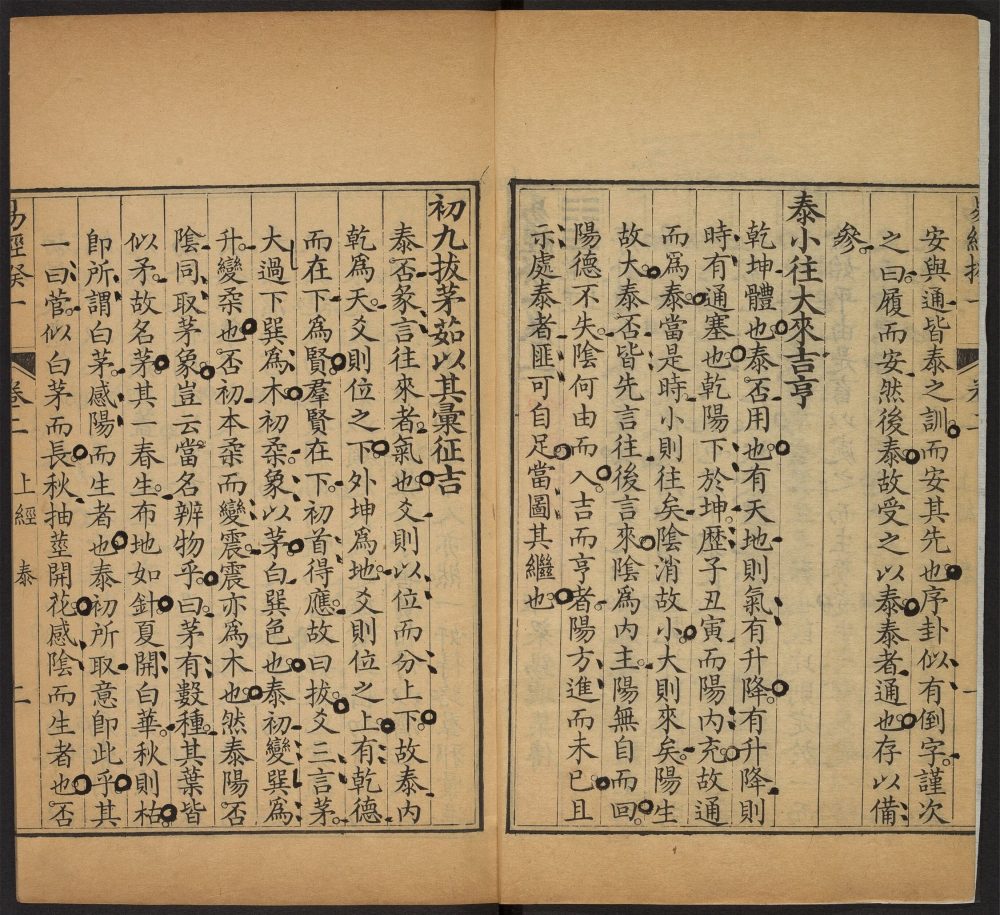 安與通皆泰之訓而安其先也序卦似有倒字謹次
之曰履而安然後泰故受之以泰泰者通也存以備
參
泰小往大來吉亨
乾坤體也泰否用也有天地則氣有升降有升降則
時有通塞也乾陽下於坤歷子丑寅而陽內充故通
而爲泰當是時小則往矣陰消故小大則來矣陽生
故大泰否皆先言往後言來陰爲內主陽無自而回
陽德不失陰何由而入吉而亨者陽方進而未已且
示處泰者匪可自足當圖其繼也
初九拔茅茹以其彙征吉
泰否彖言往來者氣也爻則以位而分上下故泰內
乾爲天爻則位之下外坤爲地爻則位之上有乾德
而在下爲賢羣賢在下初首得應故曰拔爻三言茅
大過下巽爲木初柔象以茅白巽色也泰初變巽爲
升變柔也否初本柔而變震震亦爲木也然泰陽否
陰同取茅象豈云當名辨物乎曰茅有數種其葉皆
似矛故名茅其一春生布地如針夏開白華秋則枯
卽所謂白茅感陽而生者也泰初所取意卽此乎其
一曰菅似白茅而長秋抽莖開花感陰而生者也否
卷二 上經 泰 二